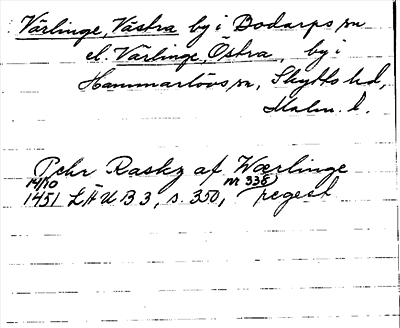 Värlinge, Västra by i Bodarps sn
el. Värlinge, Östra, by i
Hammarlövs sn, Skytts hd,
Malm. l.
Pehr Raskz af Wærlinge
14/10 nr 338
1451 LÄUB 3, s. 350, regest